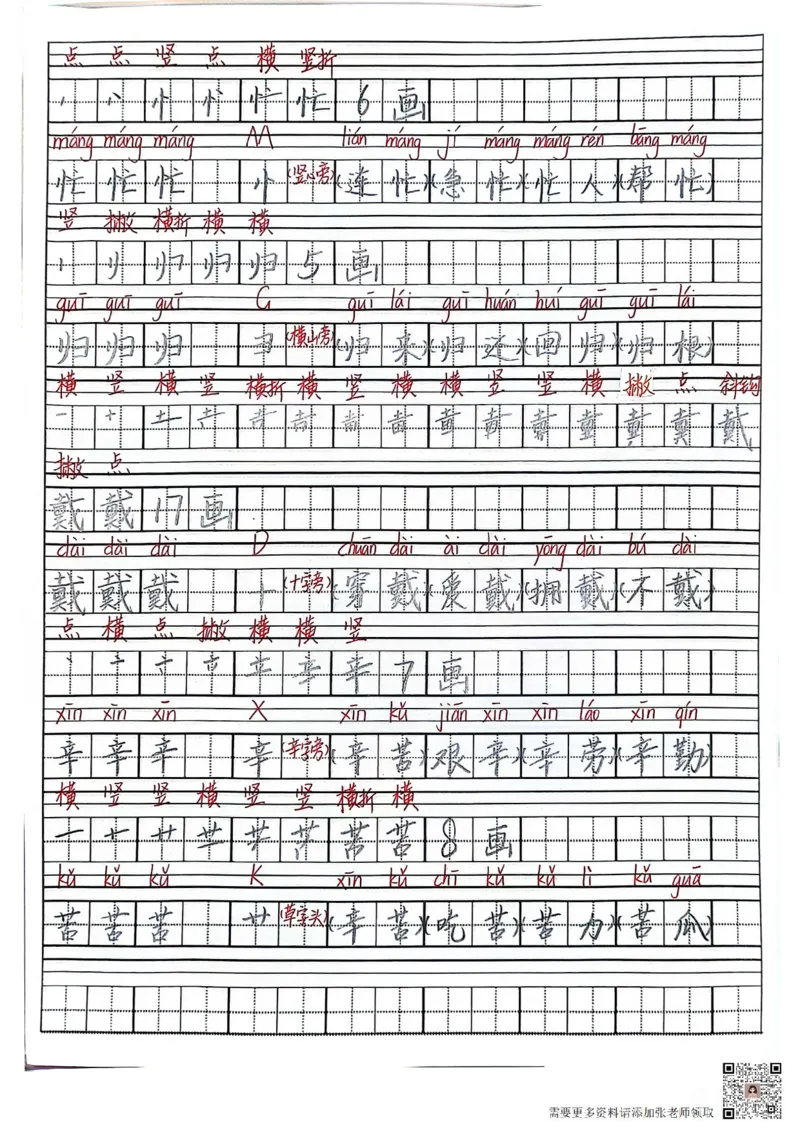 点 点 竖 点 横 竖折
忙 6 画
máng máng máng M lián máng jí máng máng rén bāng máng
忙 忙 忙 忄 (竖心旁) (连 忙) (急 忙) (忙 人) (帮 忙)
竖 撇 横折 横 横
归 归 归 5 画
guī guī guī G guī lái guī huán huí guī guī lái
归 归 归 彐 (横山旁) (归 来) (归 还) (回 归) (归 根)
横 竖 横 竖 横折 横 竖 横 横 竖 竖 横 撇 点 斜钩
一 十 土 戴
撇 点
戴 戴 17 画
dài dài dài D chuān dài ài dài yōng dài bú dài
戴 戴 戴 十 (十字旁) (穿 戴) (爱 戴) (拥 戴) (不 戴)
点 横 点 撇 横 横 竖
丶 亠 立 辛 辛 7 画
xīn xīn xīn X xīn kǔ jiān xīn xīn láo xīn qín
辛 辛 辛 辛 (辛字旁) (辛 苦) (艰 辛) (辛 劳) (辛 勤)
横 竖 竖 横 竖 竖 横折 横
一 十 艹 苦 苦 8 画
kǔ kǔ kǔ K xīn kǔ chī kǔ kǔ lì kǔ guā
苦 苦 苦 艹 (草字头) (辛 苦) (吃 苦) (苦 力) (苦 瓜)
需要更多资料请添加张老师领取